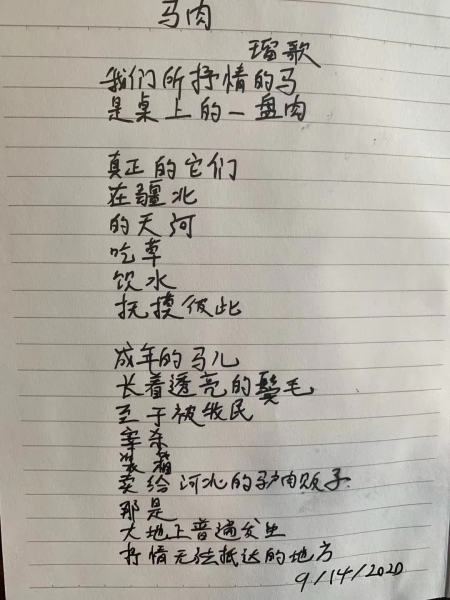 马肉
瑠歌
我们所抒情的马
是桌上的一盘肉
真正的它们
在疆北
的天河
吃草
饮水
抚摸彼此
成年的马儿
长着透亮的鬃毛
至于被牧民
宰杀
装箱
卖给河北的驴肉贩子
那是
大地上普遍发生
抒情无法抵达的地方
9/14/2020